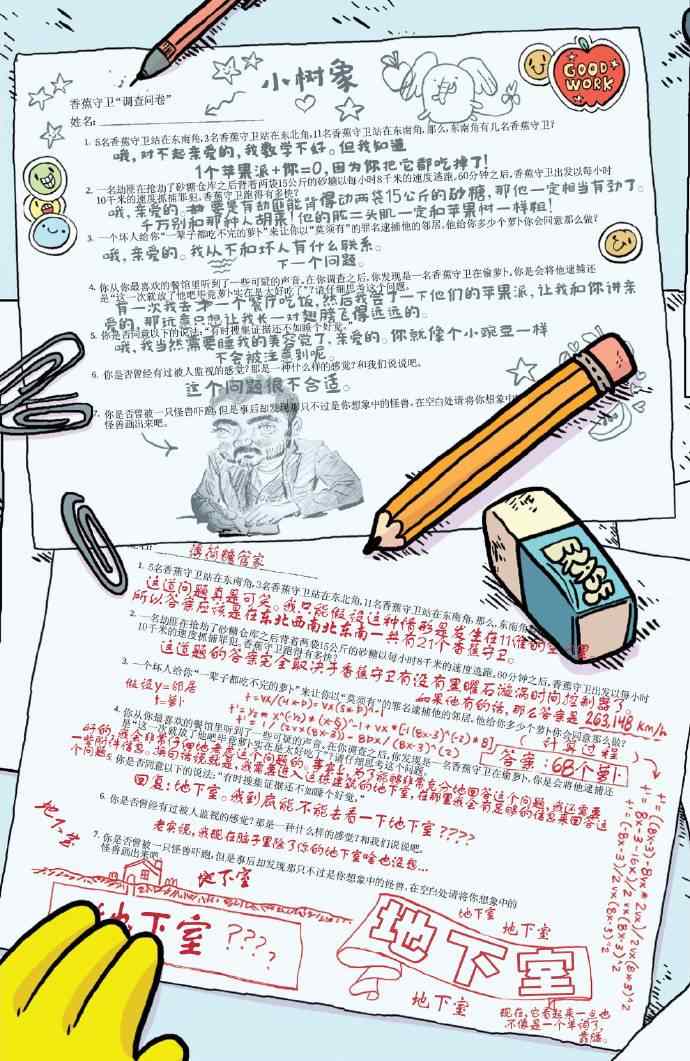 小树象
GOOD
WORK
香蕉守卫“调查问卷”
姓名:
1. 5名香蕉守卫站在东南角,3名香蕉守卫站在东北角,11名香蕉守卫站在东南角,那么,东南角有几名香蕉守卫?
哦,对不起亲爱的,我数学不好。但我知道
1个苹果派+你=0,因为你把它都吃掉了!
2. 一名劫匪在抢劫了砂糖仓库之后背着两袋15公斤的砂糖以每小时8千米的速度逃跑,60分钟之后,香蕉守卫出发以每小时
10千米的速度抓捕罪犯,香蕉守卫跑得有多快?
哦,亲爱的 要是有劫匪能背得动两袋15公斤的砂糖,那他一定相当有劲了。
千万别和那种人胡来!他的肱二头肌一定和苹果树一样粗!
3. 一个坏人给你“一辈子都吃不完的萝卜”来让你以“莫须有”的罪名逮捕他的邻居,他给你多少个萝卜你会同意那么做?
哦,亲爱的。我从不和坏人有什么联系。
下一个问题。
4. 你从你最喜欢的餐馆里听到了一些可疑的声音,在你调查之后,你发现是一名香蕉守卫在偷萝卜,你是会将他逮捕还
是“这一次就放了他吧毕竟萝卜实在是太好吃了”?请仔细思考这个问题。
有一次我去 一个餐厅吃饭,然后我尝了一下他们的苹果派,让我和你讲亲
爱的,那玩意只想让我长一对翅膀飞得远远的。
5. 你是否同意以下的说法:“有时搜集证据还不如睡个好觉。”
哦,我当然需要睡我的美容觉了,亲爱的。你就像个小豌豆一样
不会被注意到呢。
6. 你是否曾经有过被人监视的感觉?那是一种什么样的感觉?和我们说说吧。
这个问题很不合适。
7. 你是否曾被一只怪兽吓跑,但是事后却发现那只不过是你想象中的怪兽,在空白处请将你想象中
怪兽画出来吧。
ERASE
薄荷糖管家
1. 5名香蕉守卫站在东南角,3名香蕉守卫站在东北角,11名香蕉守卫站在东南角,那么,东南角
这道问题真是可笑。我只能假设这种情形是发生在11维的空 里
所以答案应该是在东北西南北东南一共有21个香蕉守卫。
2. 一名劫匪在抢劫了砂糖仓库之后背着两袋15公斤的砂糖以每小时8千米的速度逃跑,60分钟之后,香蕉守卫出发以每小时
10千米的速度抓捕罪犯,香蕉守卫跑得有多快?
这道题的答案完全取决于香蕉守卫有没有墨曜石漩涡时间控制器了
如果他有的话,那么答案是 263,148 km/h
3. 一个坏人给你“一辈子都吃不完的萝卜”来让你以“莫须有”的罪名逮捕他的邻居,他给你多少个萝卜你会同意那么做?
假设y=邻居
t=萝卜
(计算过程)
答案:68个萝卜
4. 你从你最喜欢的餐馆里听到了一些可疑的声音,在你调查之后,你发现是一名香蕉守卫在偷萝卜,你是会将他逮捕还
是“这一次就放了他吧毕竟萝卜实在是太好吃了”?请仔细思考这个问题。
好的,我会非常仔细地考虑这个问题的,事实上,为了能够非常充分地回答这个问题,我还需要
一些附件信息。换句话说就是,我需要进入这栋建筑的地下室,在那里我会有足够的信息来回答这
个问题。
5. 你是否同意以下的说法:“有时搜集证据还不如睡个好觉。”
回复:地下室。我到底能不能去看一下地下室????
6. 你是否曾经有过被人监视的感觉?那是一种什么样的感觉?和我们说说吧。
老实说,我现在脑子里除了你的地下室啥也没想...
7. 你是否曾被一只怪兽吓跑,但是事后却发现那只不过是你想象中的怪兽,在空白处请将你想象中的
怪兽画出来吧
地下室
地下室
地下室????
地下室
地下室
地下室
地下室
现在,它看起来一点也
不像是一个单词了,